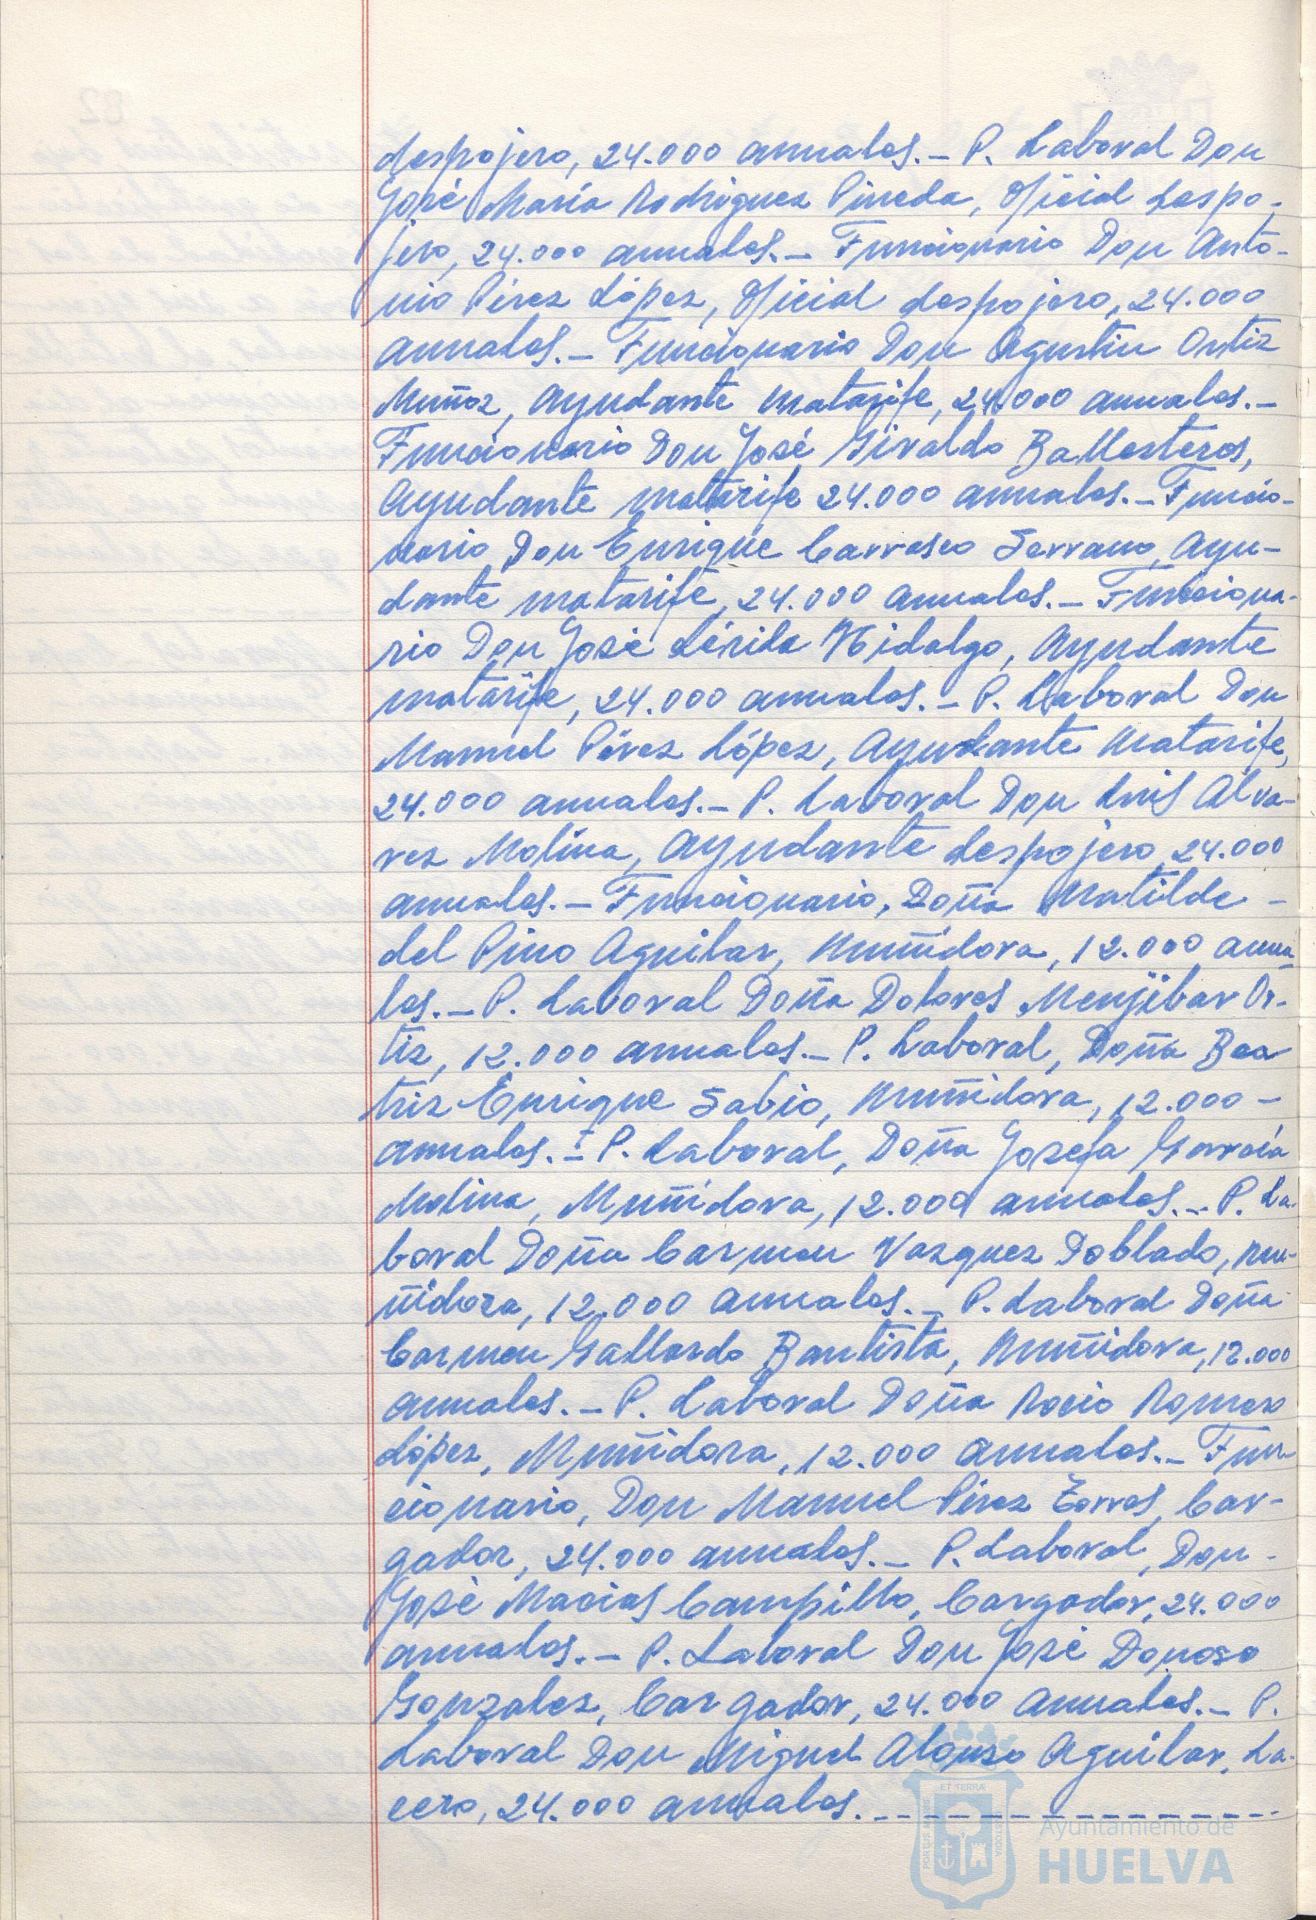 despojero, 24.000 annales.- P. Laboral Don
José María Rodriguez Pineda, Oficial despo-
jero, 24.000 annales.- Funcionario Don Anto-
nio Pérez López, Oficial despojero, 24.000
annales.- Funcionario Don Agustín Ortiz
Muñoz, Ayudante matarife, 24.000 annales.-
Funcionario Don José Giraldo Ballesteros,
Ayudante matarife 24.000 annales.- Funcio-
nario Don Enrique Carrasco Serrano, Ayu-
dante matarife, 24.000 annales.- Funciona-
rio Don José Lérida Hidalgo, Ayudante
matarife, 24.000 annales.- P. Laboral Don
Manuel Pérez López, Ayudante matarife,
24.000 annales.- P. Laboral Don Luis Alva-
rez Molina, Ayudante despojero, 24.000
annales.- Funcionario, Doña Matilde -
del Pino Aguilar, Muñidora, 12.000 anna-
les.- P. Laboral Doña Dolores Menjibar Or-
tiz, 12.000 annales.- P. Laboral, Doña Bea
triz Enrique Sabio, Muñidora, 12.000 -
annales.- P. Laboral, Doña Josefa García
Molina, Muñidora, 12.000 annales.- P. La-
boral Doña Carmen Vazquez Doblado, mu-
ñidora, 12.000 annales.- P. Laboral Doña
Carmen Gallardo Bautista, Muñidora, 12.000
annales.- P. Laboral Doña Rocio Romero
López, Muñidora, 12.000 annales.- Fun-
cionario, Don Manuel Pérez Torres, Car-
gador, 24.000 annales.- P. Laboral, Don -
José Macías Campillo, Cargador, 24.000
annales.- P. Laboral Don José Donoso
Gonzalez, Cargador, 24.000 annales.- P.
Laboral Don Miguel Alonso Aguilar, La-
cero, 24.000 annales.- - - - - - - - - - -
Ayuntamiento de
HUELVA